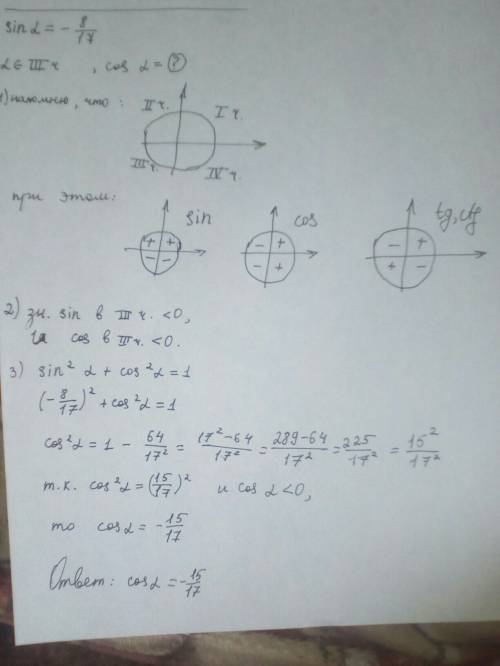 sin α = - 8/17
α ∈ III ч. , cos α = ?
1) напомню, что :
II ч. I ч.
III ч. IV ч.
при этом:
sin cos tg, ctg
+ + - + - +
- - - + + -
2) зн. sin в III ч. <0,
и cos в III ч. <0.
3) sin² α + cos² α = 1
(- 8/17)² + cos² α = 1
cos² α = 1 - 64/17² = 17² - 64/17² = 289 - 64/17² = 225/17² = 15²/17²
т.к. cos² α = (15/17)² и cos α <0,
то cos α = - 15/17
Ответ: cos α = - 15/17